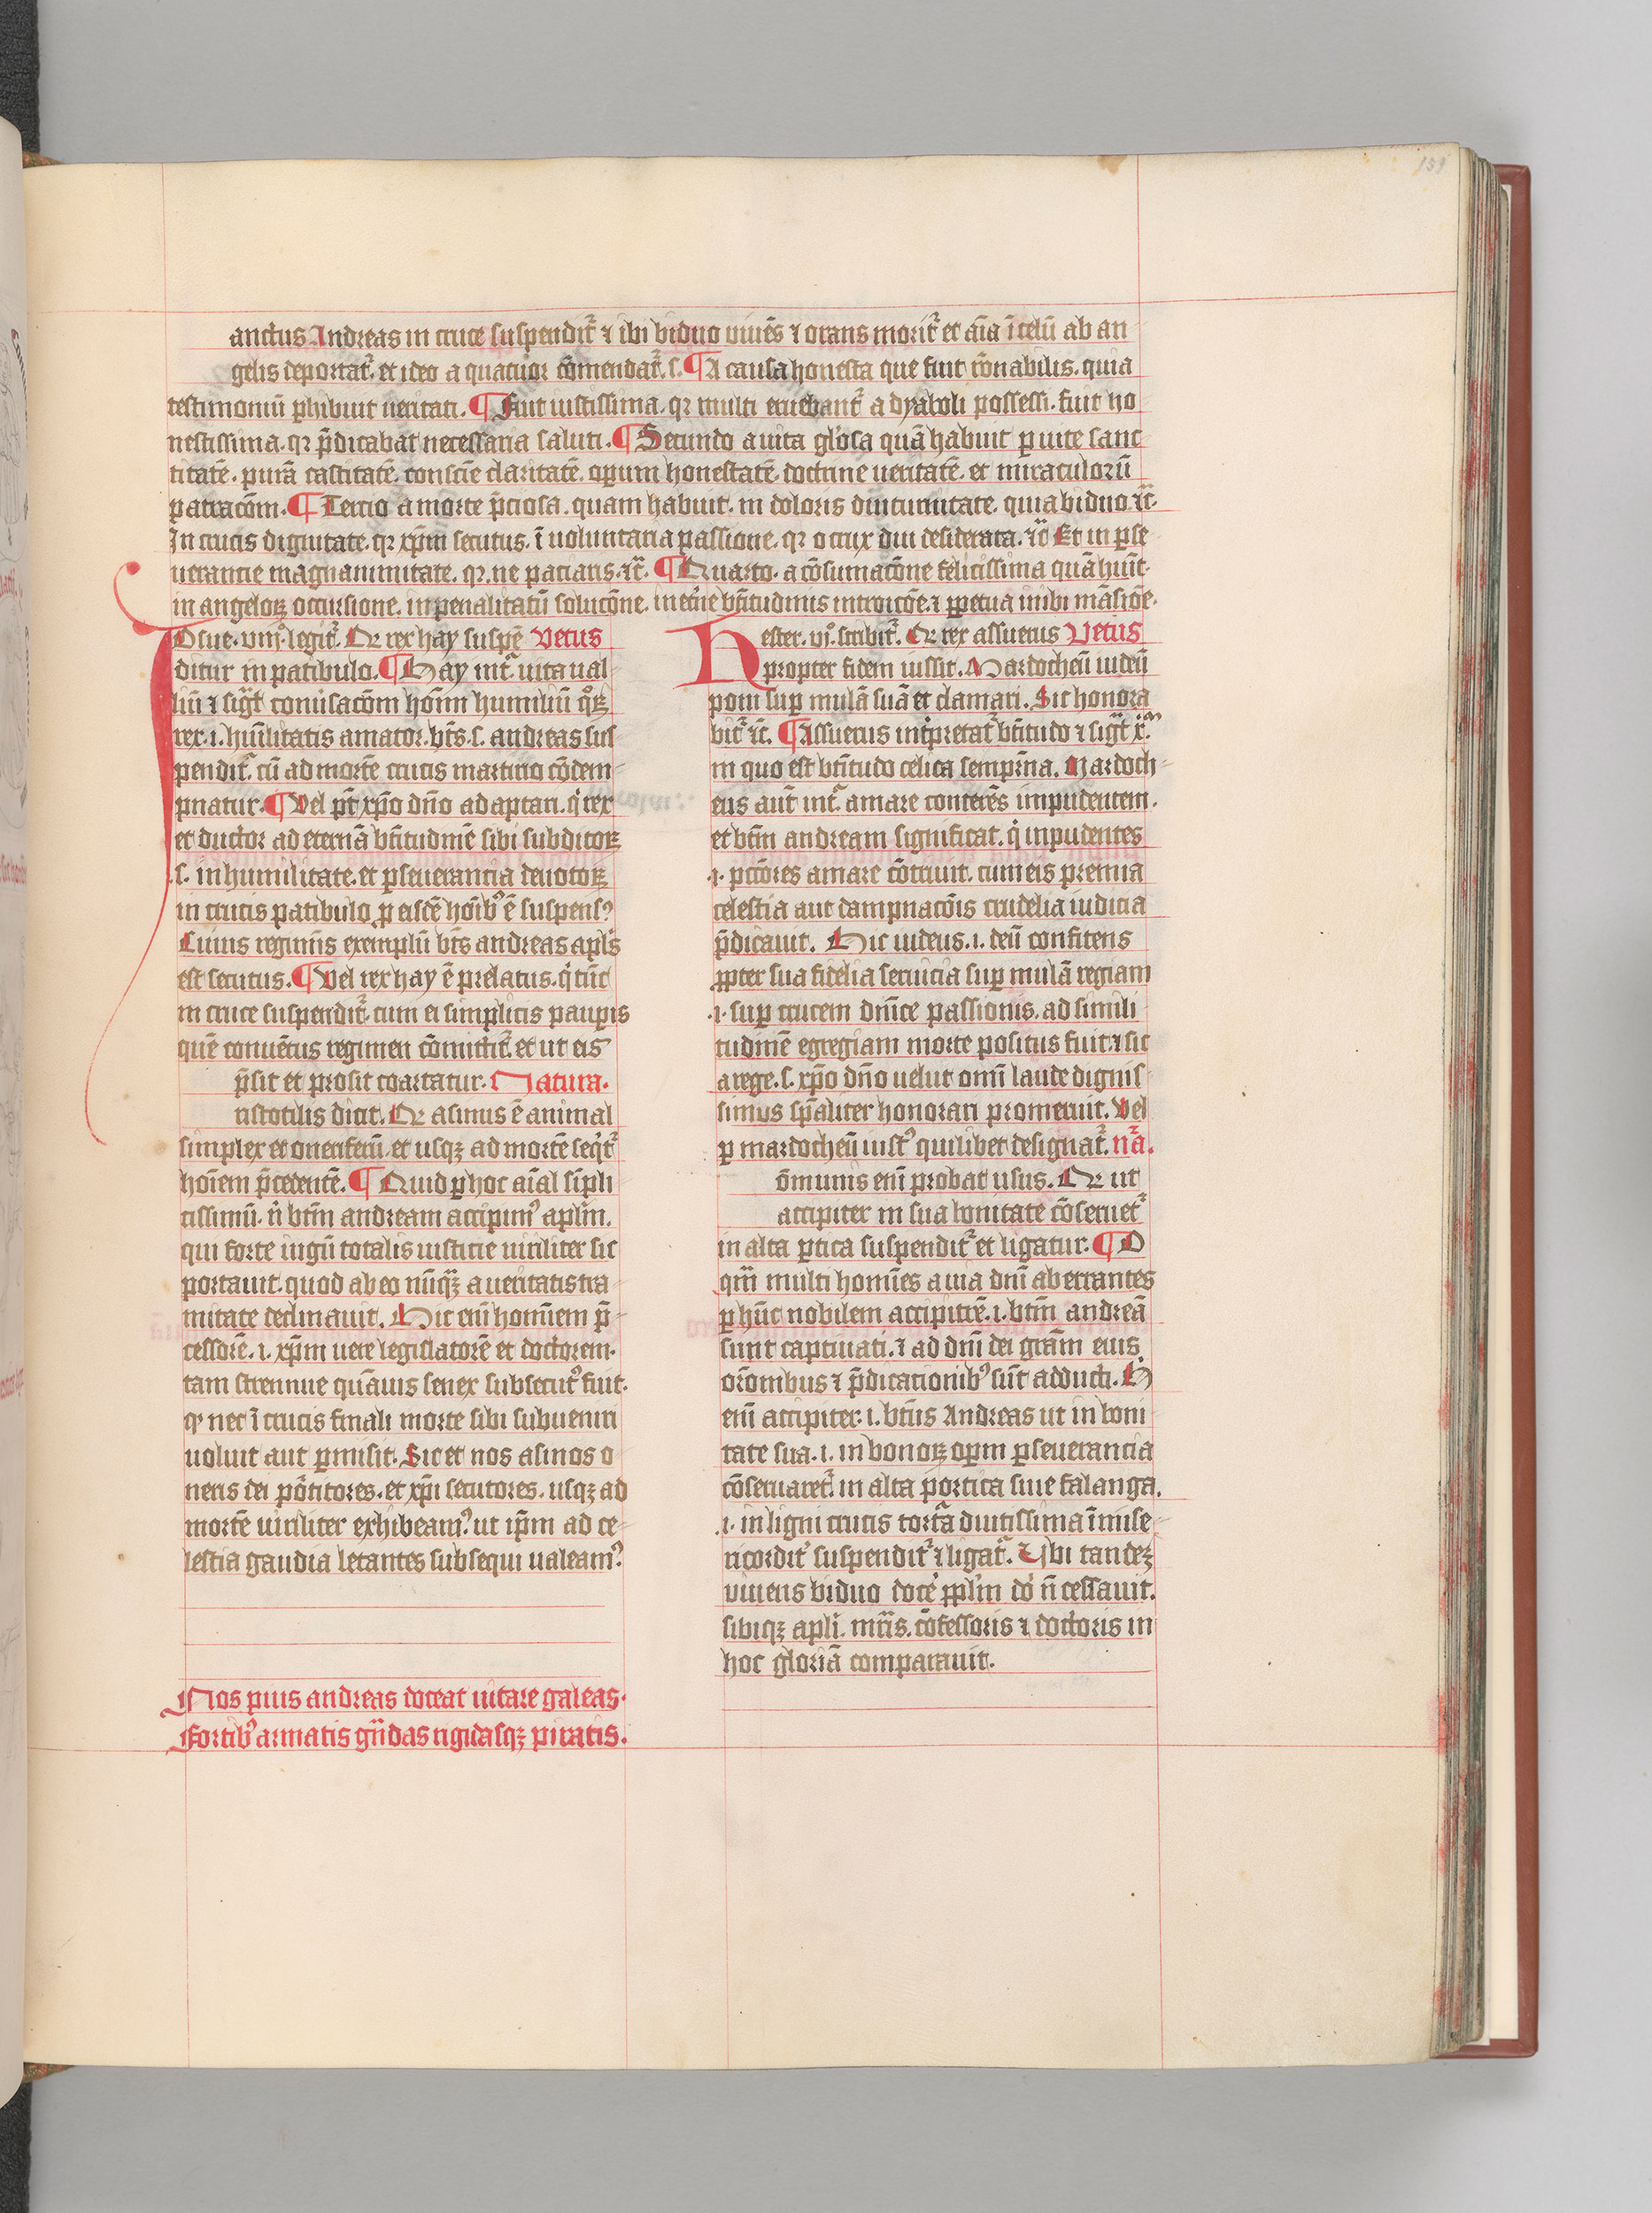 159
anctus Andreas in cruce suspendit᷑ ⁊ ibi biduo viuēs ⁊ orans morit᷑ et aīa ī celū ab an
gelis deportat᷑. et ideo a quatuor cōmendat᷑. s. ¶ A causa honesta que fuit rōnabilis. quia
testimoniū phibuit ueritati. ¶ Fuit iustissima. qr multi eruebant᷑ a dyaboli possessi. fuit ho
nestissima. qr p̄dicabat necessaria saluti. ¶ Secundo a uita gl'osa quā habuit p uite sanc
titatē. purā castitatē. consciē claritatē. operum honestatē. doctrine ueritatē. et miraculorū
patracōm. ¶ Tercio a morte p̄ciosa. quam habuit. in doloris diuturnitate. quia biduo ⁊c̄.
In crucis dignitate. qr xp̄m secutus. ī uoluntaria passione. qr o crux diu desiderata. ⁊c̄ Et in pse
uerancie magnanimitate. qr. ne paciaris. ⁊c̄. ¶ Quarto. a cōsumacōne felicissima quā hūit.
in angeloꝝ occursione. in penalitatū solucōne. in et'ne bt̄itudinis introicōe. ⁊ ppetua inibi māsiōe.
Iosue. viijͦ. legit᷑. Qr rex hay suspē Vetus
ditur in patibulo. ¶ Hay int᷑ uita ual
liū ⁊ sigt̄ conuisacōm hoīm humiliū qͦꝝ
rex. i. hūilitatis amator. bt̄s. s. andreas sus
pendit᷑. cū ad mortē crucis martirio cōdem
pnatur. ¶ Vel pt̄ xpō dn̄o adaptari. q' rex
et ductor ad eternā bt̄itudinē sibi subditoꝝ
.s. in humilitate. et pseuerancia deuotoꝝ
in crucis patibulo. p eisdē hoībꝰ ē suspensꝰ
Cuius regiminis exemplū bt̄s andreas apl's
est secutus. ¶ Vel rex hay ē prelatus. q' tūc
in cruce suspendit᷑. cum ei simplicis paupis
quē conuētus regimen cōmittit᷑. et ut eis
p̄sit et prosit coartatur. Natura.
ristotilis dicit. Qr asinus ē animal
simplex et oneriferū. et usqꝫ ad mortē seq't᷑
hoīem p̄cedentē. ¶ Quid p hoc aīal sīpli
cissimū. n̄ btm̄ andream accipimꝰ apl'm.
qui forte iugū totalis iusticie uiriliter sic
portauit. quod ab eo nūqꝫ a ueritatis tra
mitate declinauit. Hic eni hominem p̄
cessorē. i. xp̄m uere legislatorē et doctorem.
tam strennue quāuis senex subsecutꝰ fuit.
qͦ nec ī crucis finali morte sibi subueniri
uoluit aut pmisit. Sic et nos asinos o
neris dei portitores. et xp̄i secutores. usqꝫ ad
mortē uiriliter exhibeamꝰ. ut ip̄m ad ce
lestia gaudia letantes subsequi ualeamꝰ.
Nos pius andreas doceat uitare galeas.
Fortibꝰ armatis gn̄das rigidasqꝫ piratis.
Hester. vjͦ. scribit᷑. Qr rex assuerus Vetus
propter fidem iussit. Mardocheū iudeū
poni sup mulā suā et clamari. Sic honora
bit᷑ ⁊c̄. ¶ Assuerus int'pretat᷑ bt̄itudo ⁊ sigt̄ x᷑m
in quo est bt̄itudo celica sempit'na. Mardoch
eus aut̄ int᷑ amare conterēs impudentem.
et btm̄ andream significat. q' inpudentes
.i. pctōres amare cōtriuit. cum eis premia
celestia aut dampnacōis crudelia iudicia
p̄dicauit. Hic iudeus. i. deū confitens
ppter sua fidelia seruicia sup mulā regiam
.i. sup crucem dn̄ice passionis. ad simili
tudinē egregiam morte positus fuit. ⁊ sic
a rege. s. xpō dn̄o uelut omī laude dignis
simus spāliter honorari promeruit. Vel
p mardocheū iustꝰ quilibet designat᷑. nr̄a.
ōmunis enī probat usus. Qr ut
accipiter in sua bonitate cōseruet᷑
in alta ptica suspendit᷑ et ligatur. ¶ O
qm̄ multi homīes a uia dn̄i aberrantes
p hūc nobilem accipitrē. i. btm̄ andreā
sunt captiuati. ⁊ ad dn̄i dei grām eius
orōnibus ⁊ p̄dicationibꝰ sūt adducti. H
enī accipiter. i. bt̄us Andreas ut in boni
tate sua. i. in bonoꝝ opm pseuerancia
cōseruaret᷑. in alta portica siue falanga.
.i. in ligni crucis torta diutissima īmise
ricordit᷑ suspendit᷑ ⁊ ligat᷑. Ubi tandeꝫ
viuens biduo docē pplm̄ dō n̄ cessauit.
sibiqꝫ apli. mr̄is. cōfessoris ⁊ doctoris in
hoc gloriā comparauit.